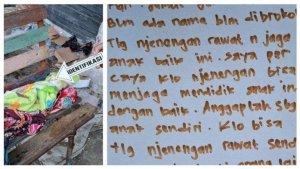 IDENTIFIKASI
Blm ada nama blm dibroko
Tlg njenengan rawat n jaga
anak baik ini. saya per
caya klo njenengan bisa
menjaga mendidik anak ini
dengan baik. Anggaplah sbg
anak sendiri. Klo bisa
tlg njenengan rawat send
orang lai